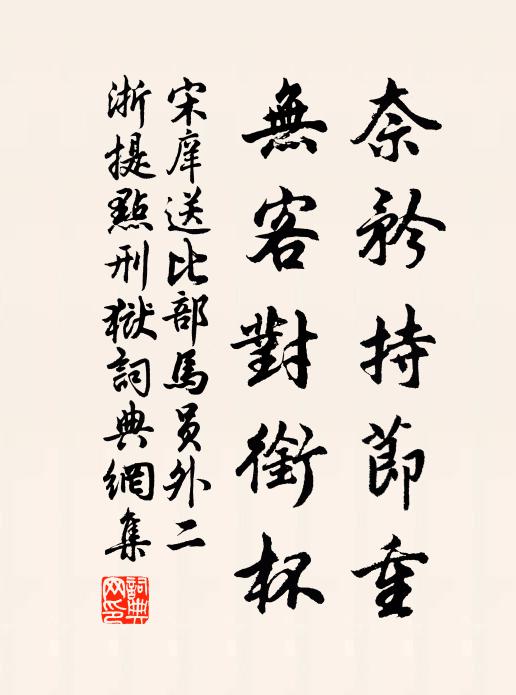 奈矜持節重
無客對銜杯
宋庠送比部馬員外二
浙提點刑獄詞典網集